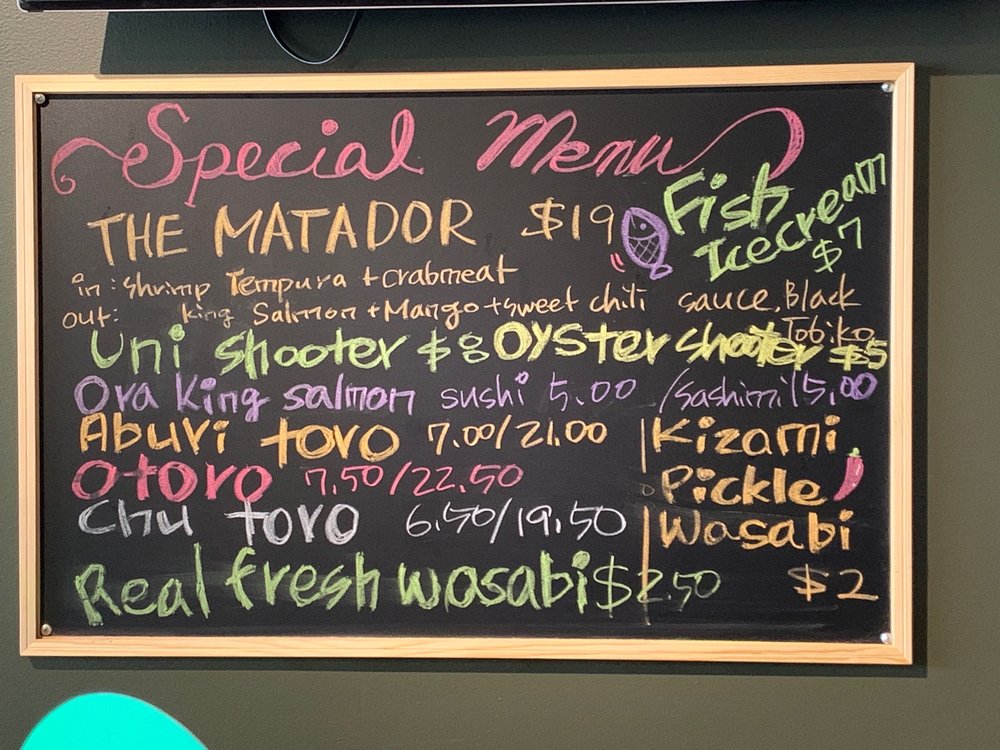 Special Menu
THE MATADOR $19
Fish
Icecream
$7
in: shrimp Tempura + crabmeat
out: king Salmon + Mango + sweet chili sauce, Black
Tobiko
Uni shooter $8 Oyster shooter $5
Ora King salmon sushi 5.00 /sashimi 15.00
Aburi toro 7.00/21.00
Otoro 7.50/22.50
Chu toro 6.50/19.50
Kizami
Pickle
Wasabi
$2
Real fresh wasabi $2.50